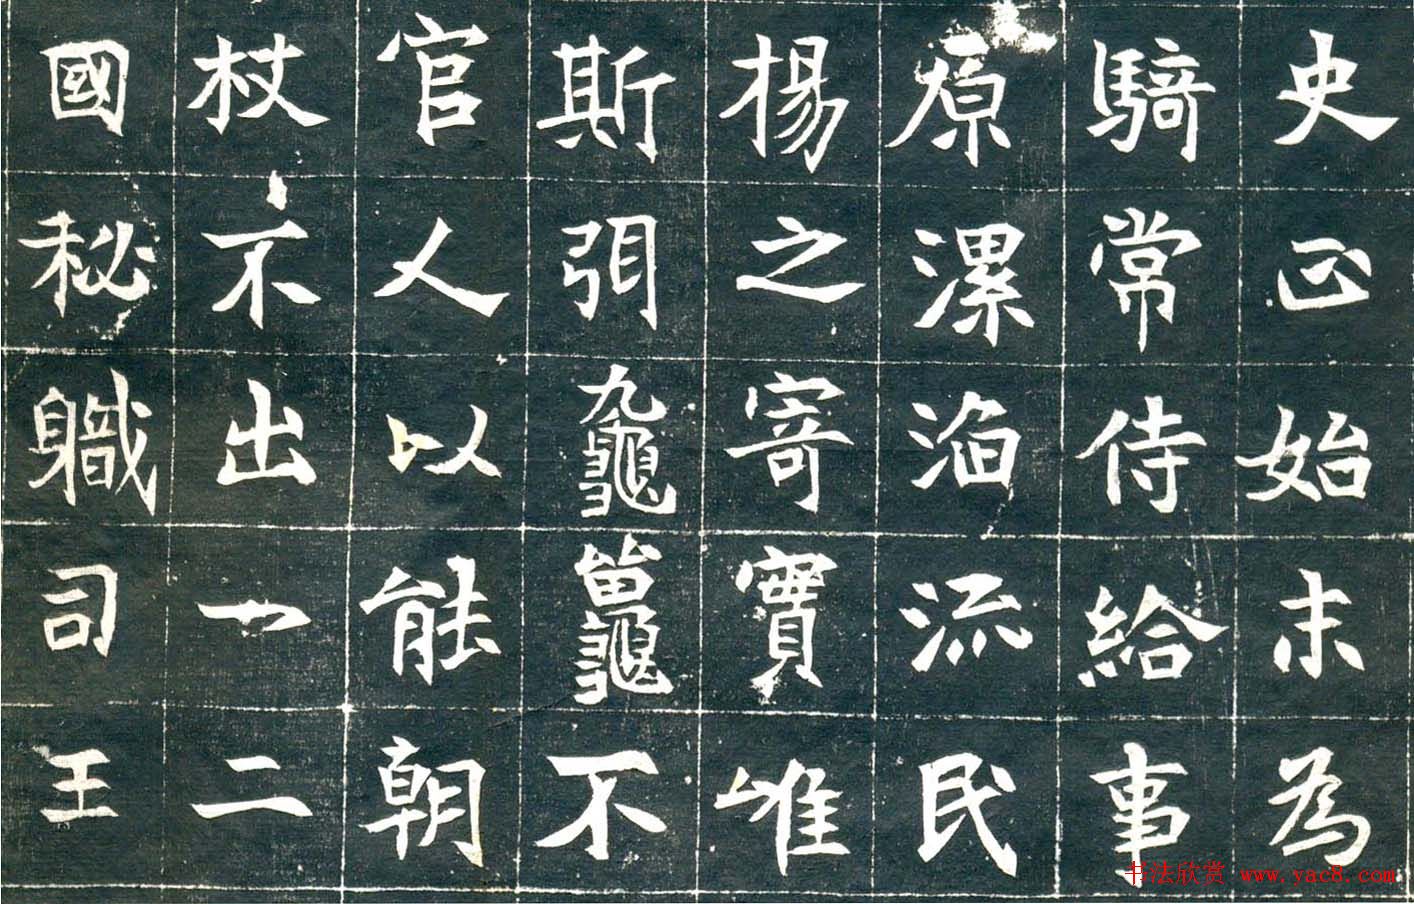 史正始末為
騎常侍給事
原漯淊流民
楊之寄實唯
斯弭不
官人以能朝
杖不出一二
國秘軄司王
书法欣赏 www.yac8.com